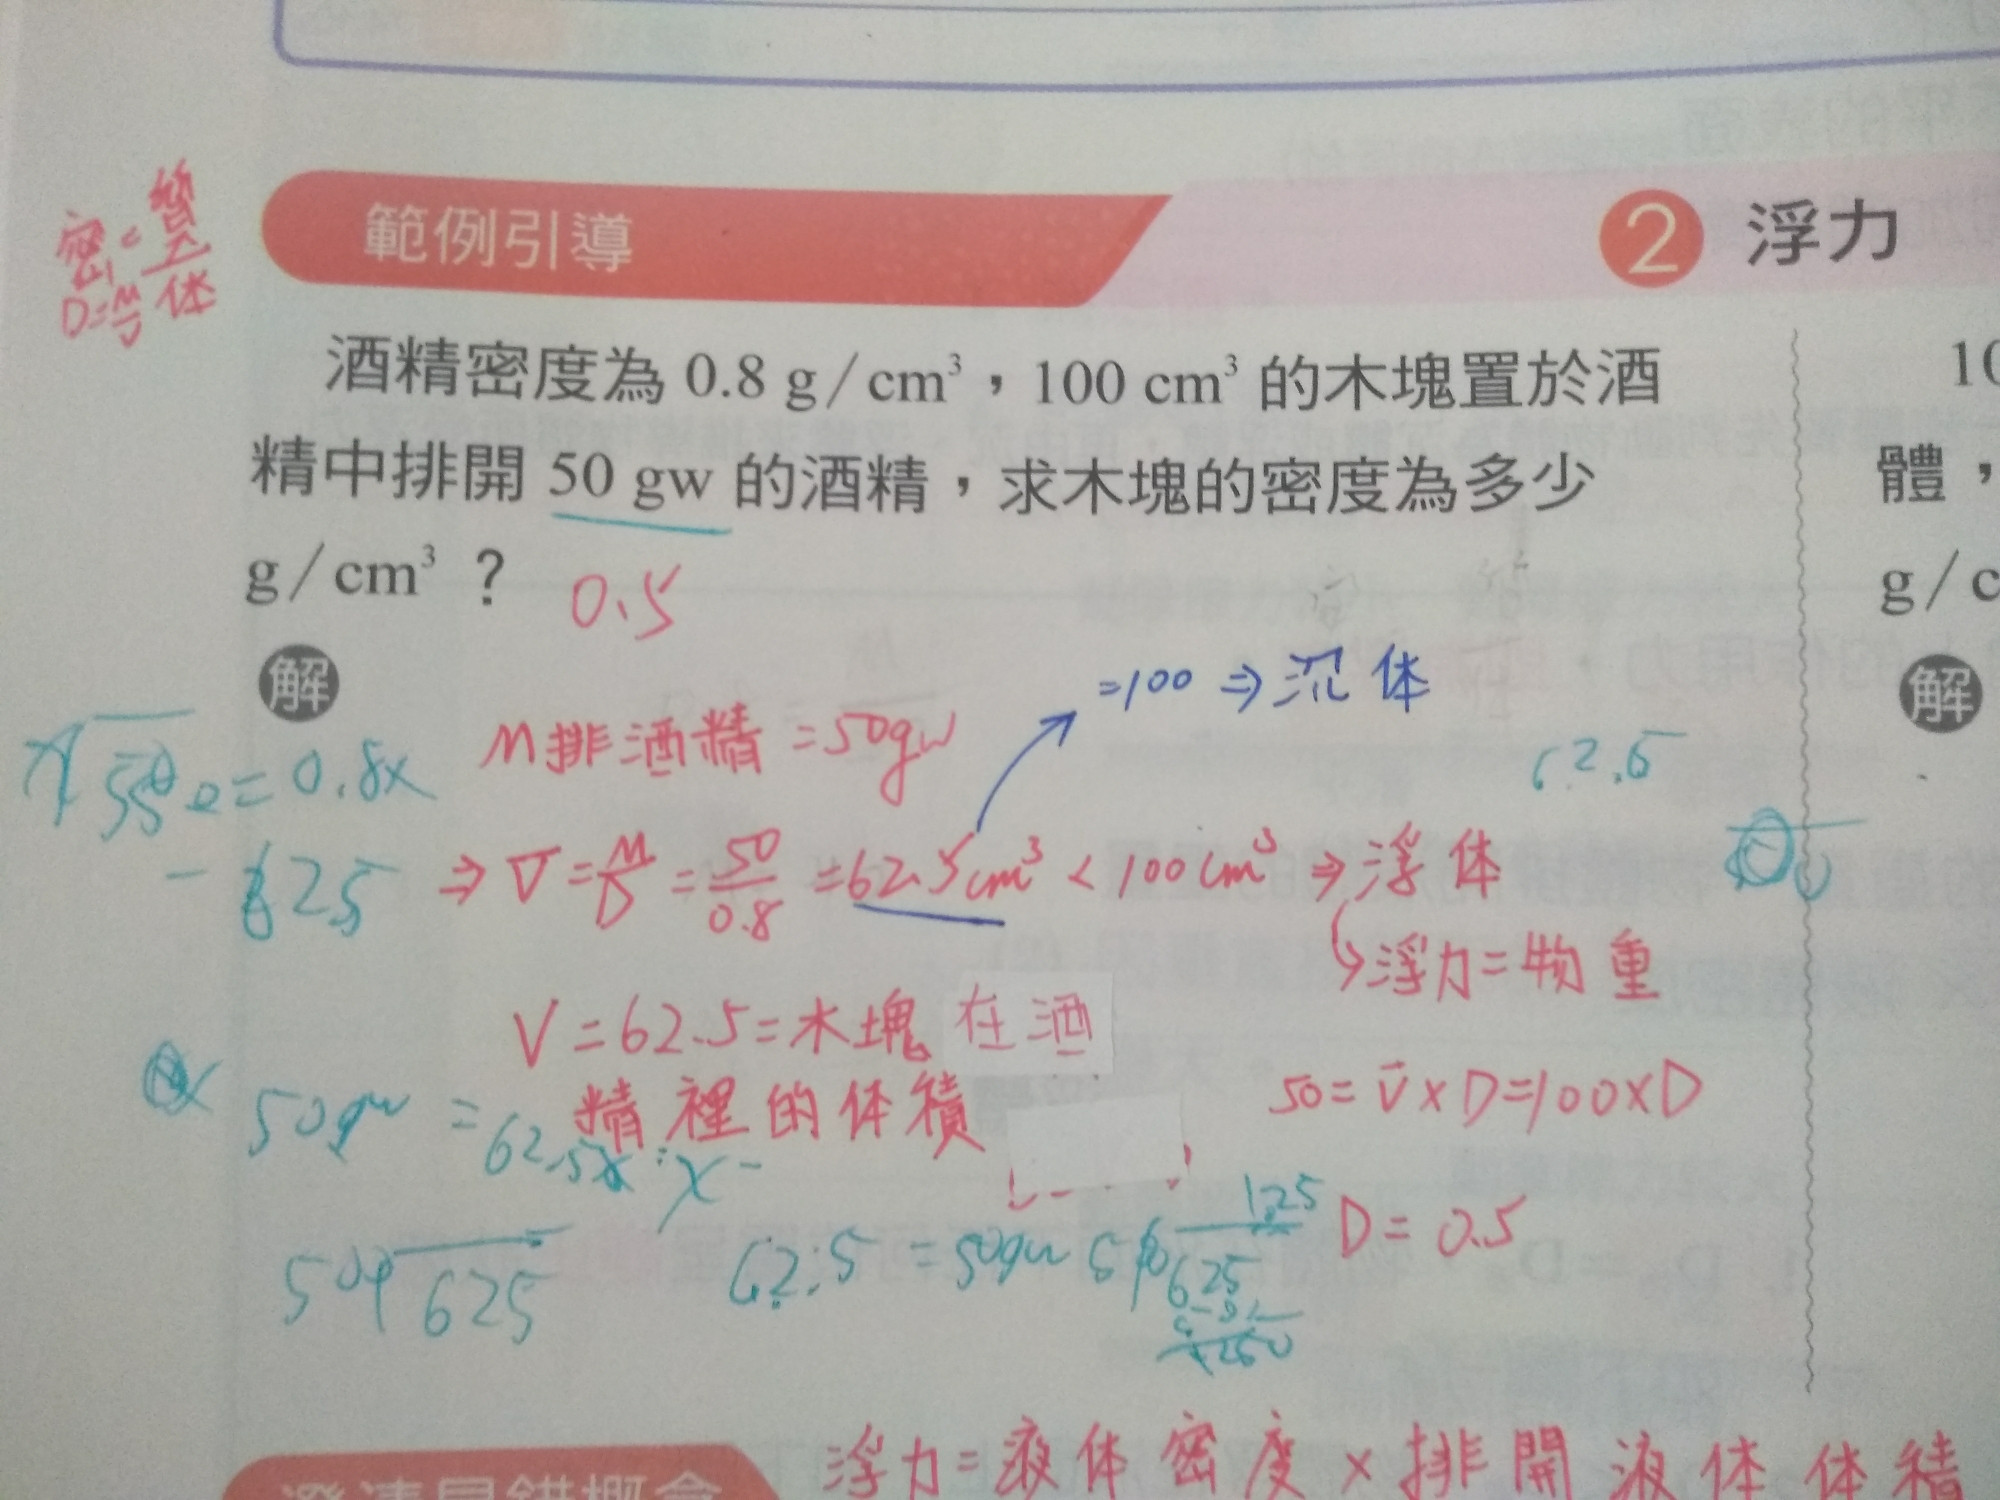 密=質/体
D=M/V
範例引導
2 浮力
酒精密度為 0.8 g/cm³，100 cm³ 的木塊置於酒
精中排開 50 gw 的酒精，求木塊的密度為多少
g/cm³？ 0.5
解
=100 ⇒ 沉体
M排酒精=50gw
=0.8x
62.5
625
⇒ V=M/D=50/0.8=62.5cm³<100cm³ ⇒ 浮体
↳浮力=物重
V=62.5=木塊在酒
精裡的体積
50=V×D=100×D
50gw=62.5x
D=0.5
1.25
625
62.5=50gw
50
625
250
浮力=液体密度×排開液体体積
澄清易錯概念
10
體，
g/c
解